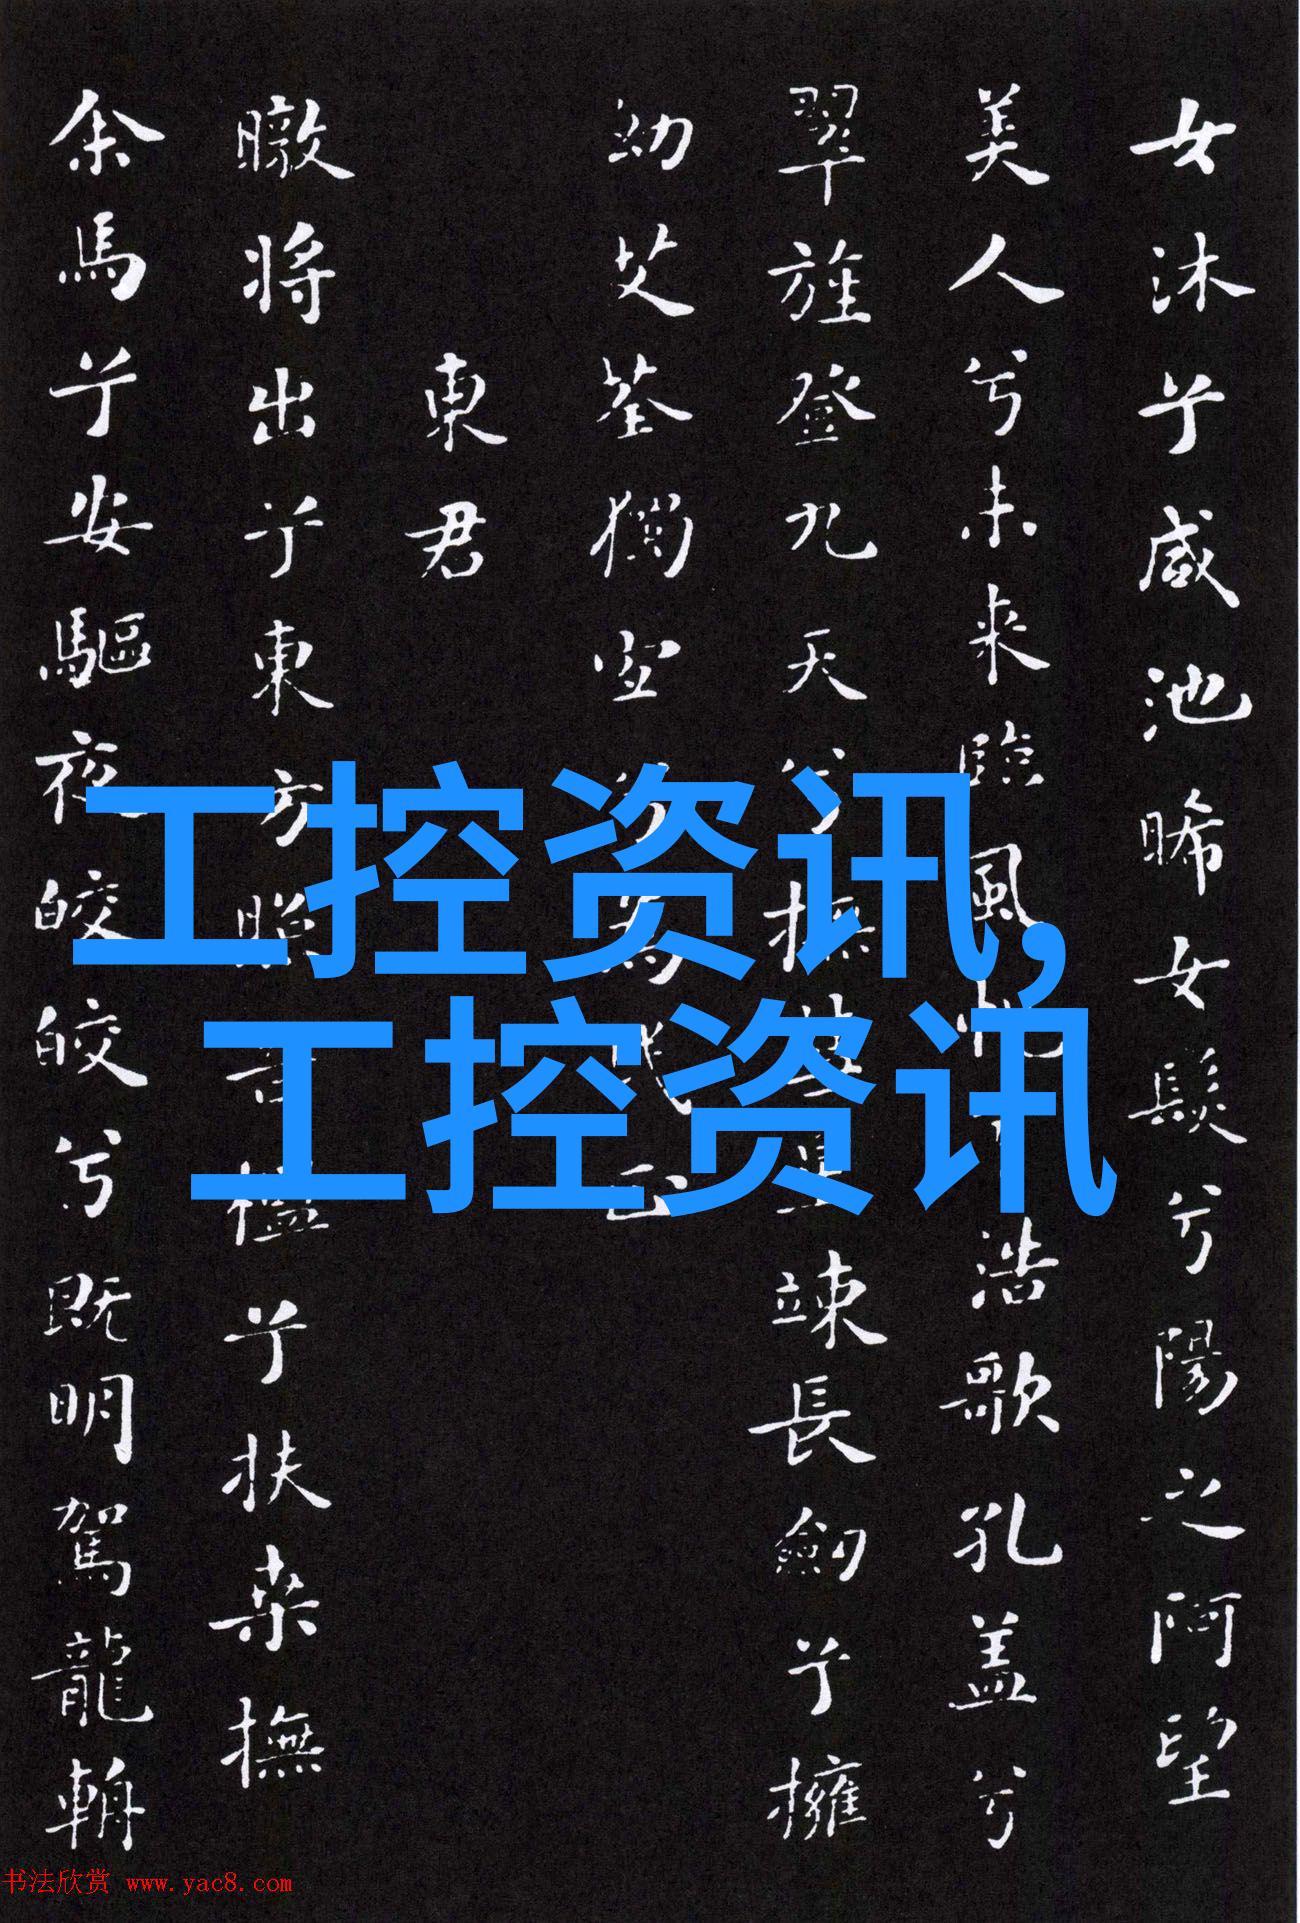 女沐兮咸池晞女髮兮陽之阿望
美人兮未来臨風怳兮浩歌孔盖兮
翠旌登九天兮撫彗星竦長劍兮擁
幼艾荃獨宜兮為民正
東君
暾將出兮東方照吾檻兮扶桒撫
余馬兮安驅夜皎皎兮既明駕龍輈
工控资讯,
工控资讯
书法欣赏 www.yac8.com